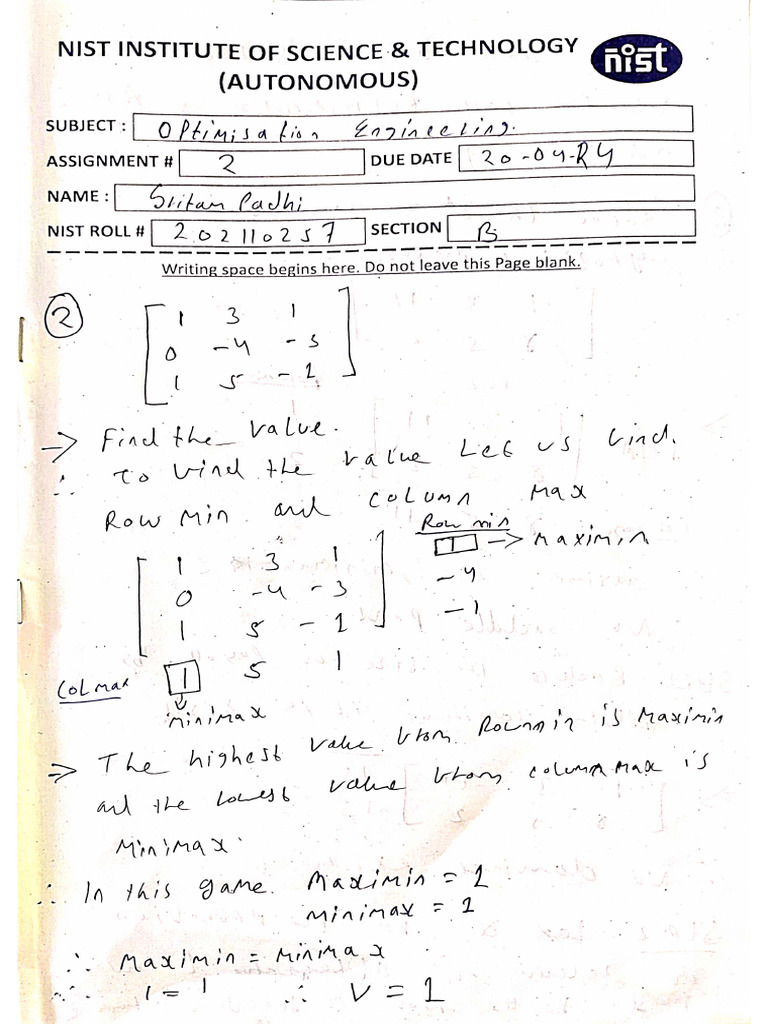 NIST INSTITUTE OF SCIENCE & TECHNOLOGY
(AUTONOMOUS)
nist
SUBJECT : Optimisation Engineering.
ASSIGNMENT # 2 DUE DATE 20-04-24
NAME : Sritam Padhi
NIST ROLL # 202110257 SECTION B
Writing space begins here. Do not leave this Page blank.
2
1 3 1
0 -4 -3
1 5 -1
→ Find the value.
∴ To find the value Let us find.
Row Min and column Max
Row min
1 3 1 1 → Maximin
0 -4 -3 -4
1 5 -1 -1
Col max 1 5 1
Minimax
⇒ The highest value from Rowmin is Maximin
and the lowest value from column max is
Minimax.
∴ In this game. Maximin = 1
minimax = 1
∴ Maximin = Minimax
∴ 1 = 1 ∴ V = 1